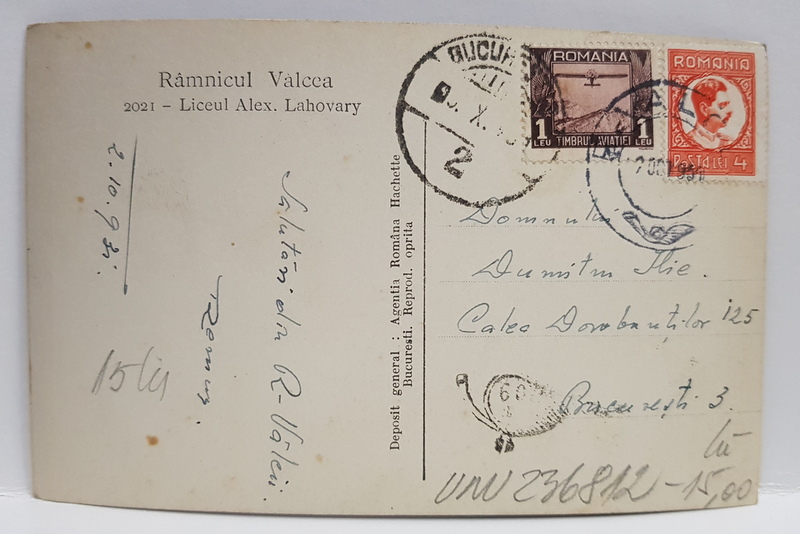 Râmnicul Vâlcea
2021 – Liceul Alex. Lahovary
2.10.931.
Salutări din R-Vâlcii.
Remus.
15 lei
Deposit general : Agentia Româna Hachette
Bucuresti. Reprod. oprita
BUCUR
X
2
ROMANIA
1 LEU TIMBRUL AVIATIEI 1 LEU
ROMANIA
POSTA LEI 4
2 OCT 931
Domnului
Dumitru Ilie.
Calea Dorobanților 125
București 3.
60
UMV 236812 – 15,00